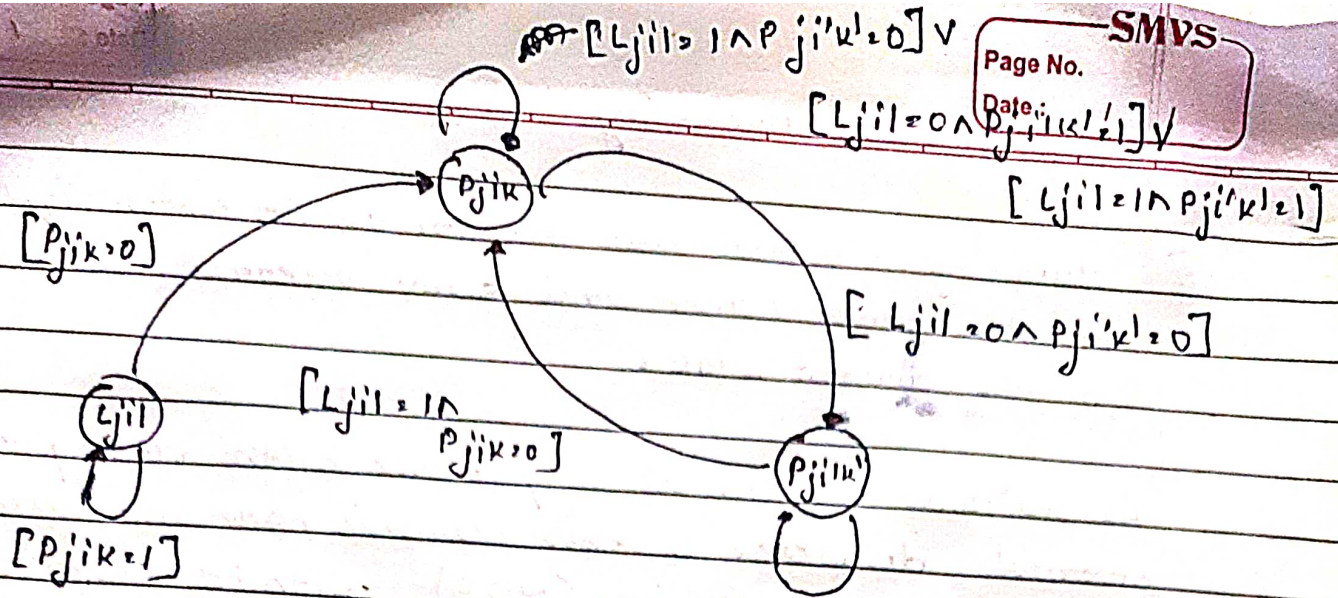 [Ljil=1∧Pji'k'=0]∨
SMVS
Page No.
Date:
[Ljil=0∧Pji'k'=1]∨
[Ljil=1∧Pji'k'=1]
Pjik
[Pjik=0]
[Ljil=0∧Pji'k'=0]
[Ljil=1∧
Pjik=0]
Ljil
Pji'k'
[Pjik=1]